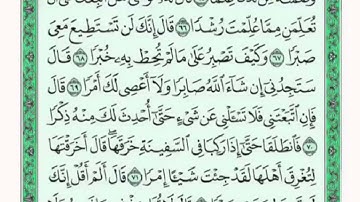 تُعَلِّمَنِ مِمَّا عُلِّمْتَ رُشْدًا ٦٦ قَالَ إِنَّكَ لَنْ تَسْتَطِيعَ مَعِيَ
صَبْرًا ٦٧ وَكَيْفَ تَصْبِرُ عَلَىٰ مَا لَمْ تُحِطْ بِهِ خُبْرًا ٦٨ قَالَ
سَتَجِدُنِي إِنْ شَاءَ اللَّهُ صَابِرًا وَلَا أَعْصِي لَكَ أَمْرًا ٦٩ قَالَ
فَإِنِ اتَّبَعْتَنِي فَلَا تَسْئَلْنِي عَنْ شَيْءٍ حَتَّىٰ أُحْدِثَ لَكَ مِنْهُ ذِكْرًا
٧٠ فَانْطَلَقَا حَتَّىٰ إِذَا رَكِبَا فِي السَّفِينَةِ خَرَقَهَا ۖ قَالَ أَخَرَقْتَهَا
لِتُغْرِقَ أَهْلَهَا لَقَدْ جِئْتَ شَيْئًا إِمْرًا ٧١ قَالَ أَلَمْ أَقُلْ إِنَّكَ